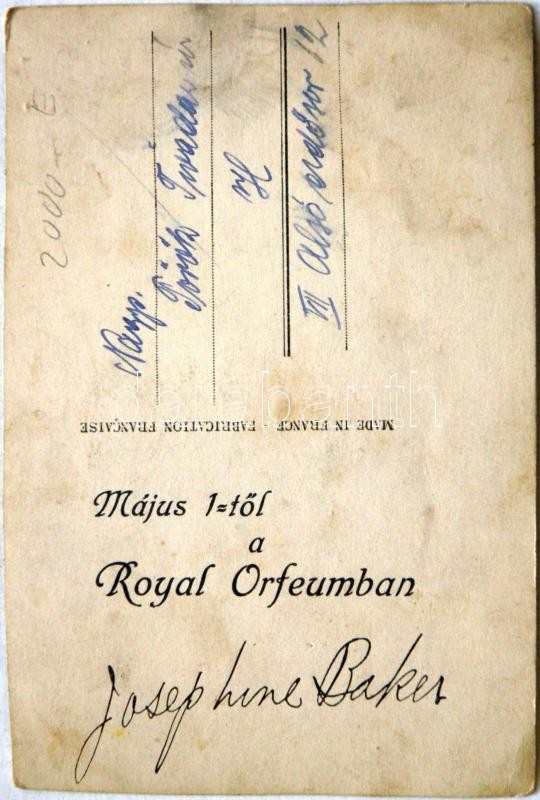 2000.- E
Nagys.
Török Tivadar úr
VII Alsó erdősor 12
MADE IN FRANCE FABRICATION FRANÇAISE
Május 1=től
a
Royal Orfeumban
Josephine Baker